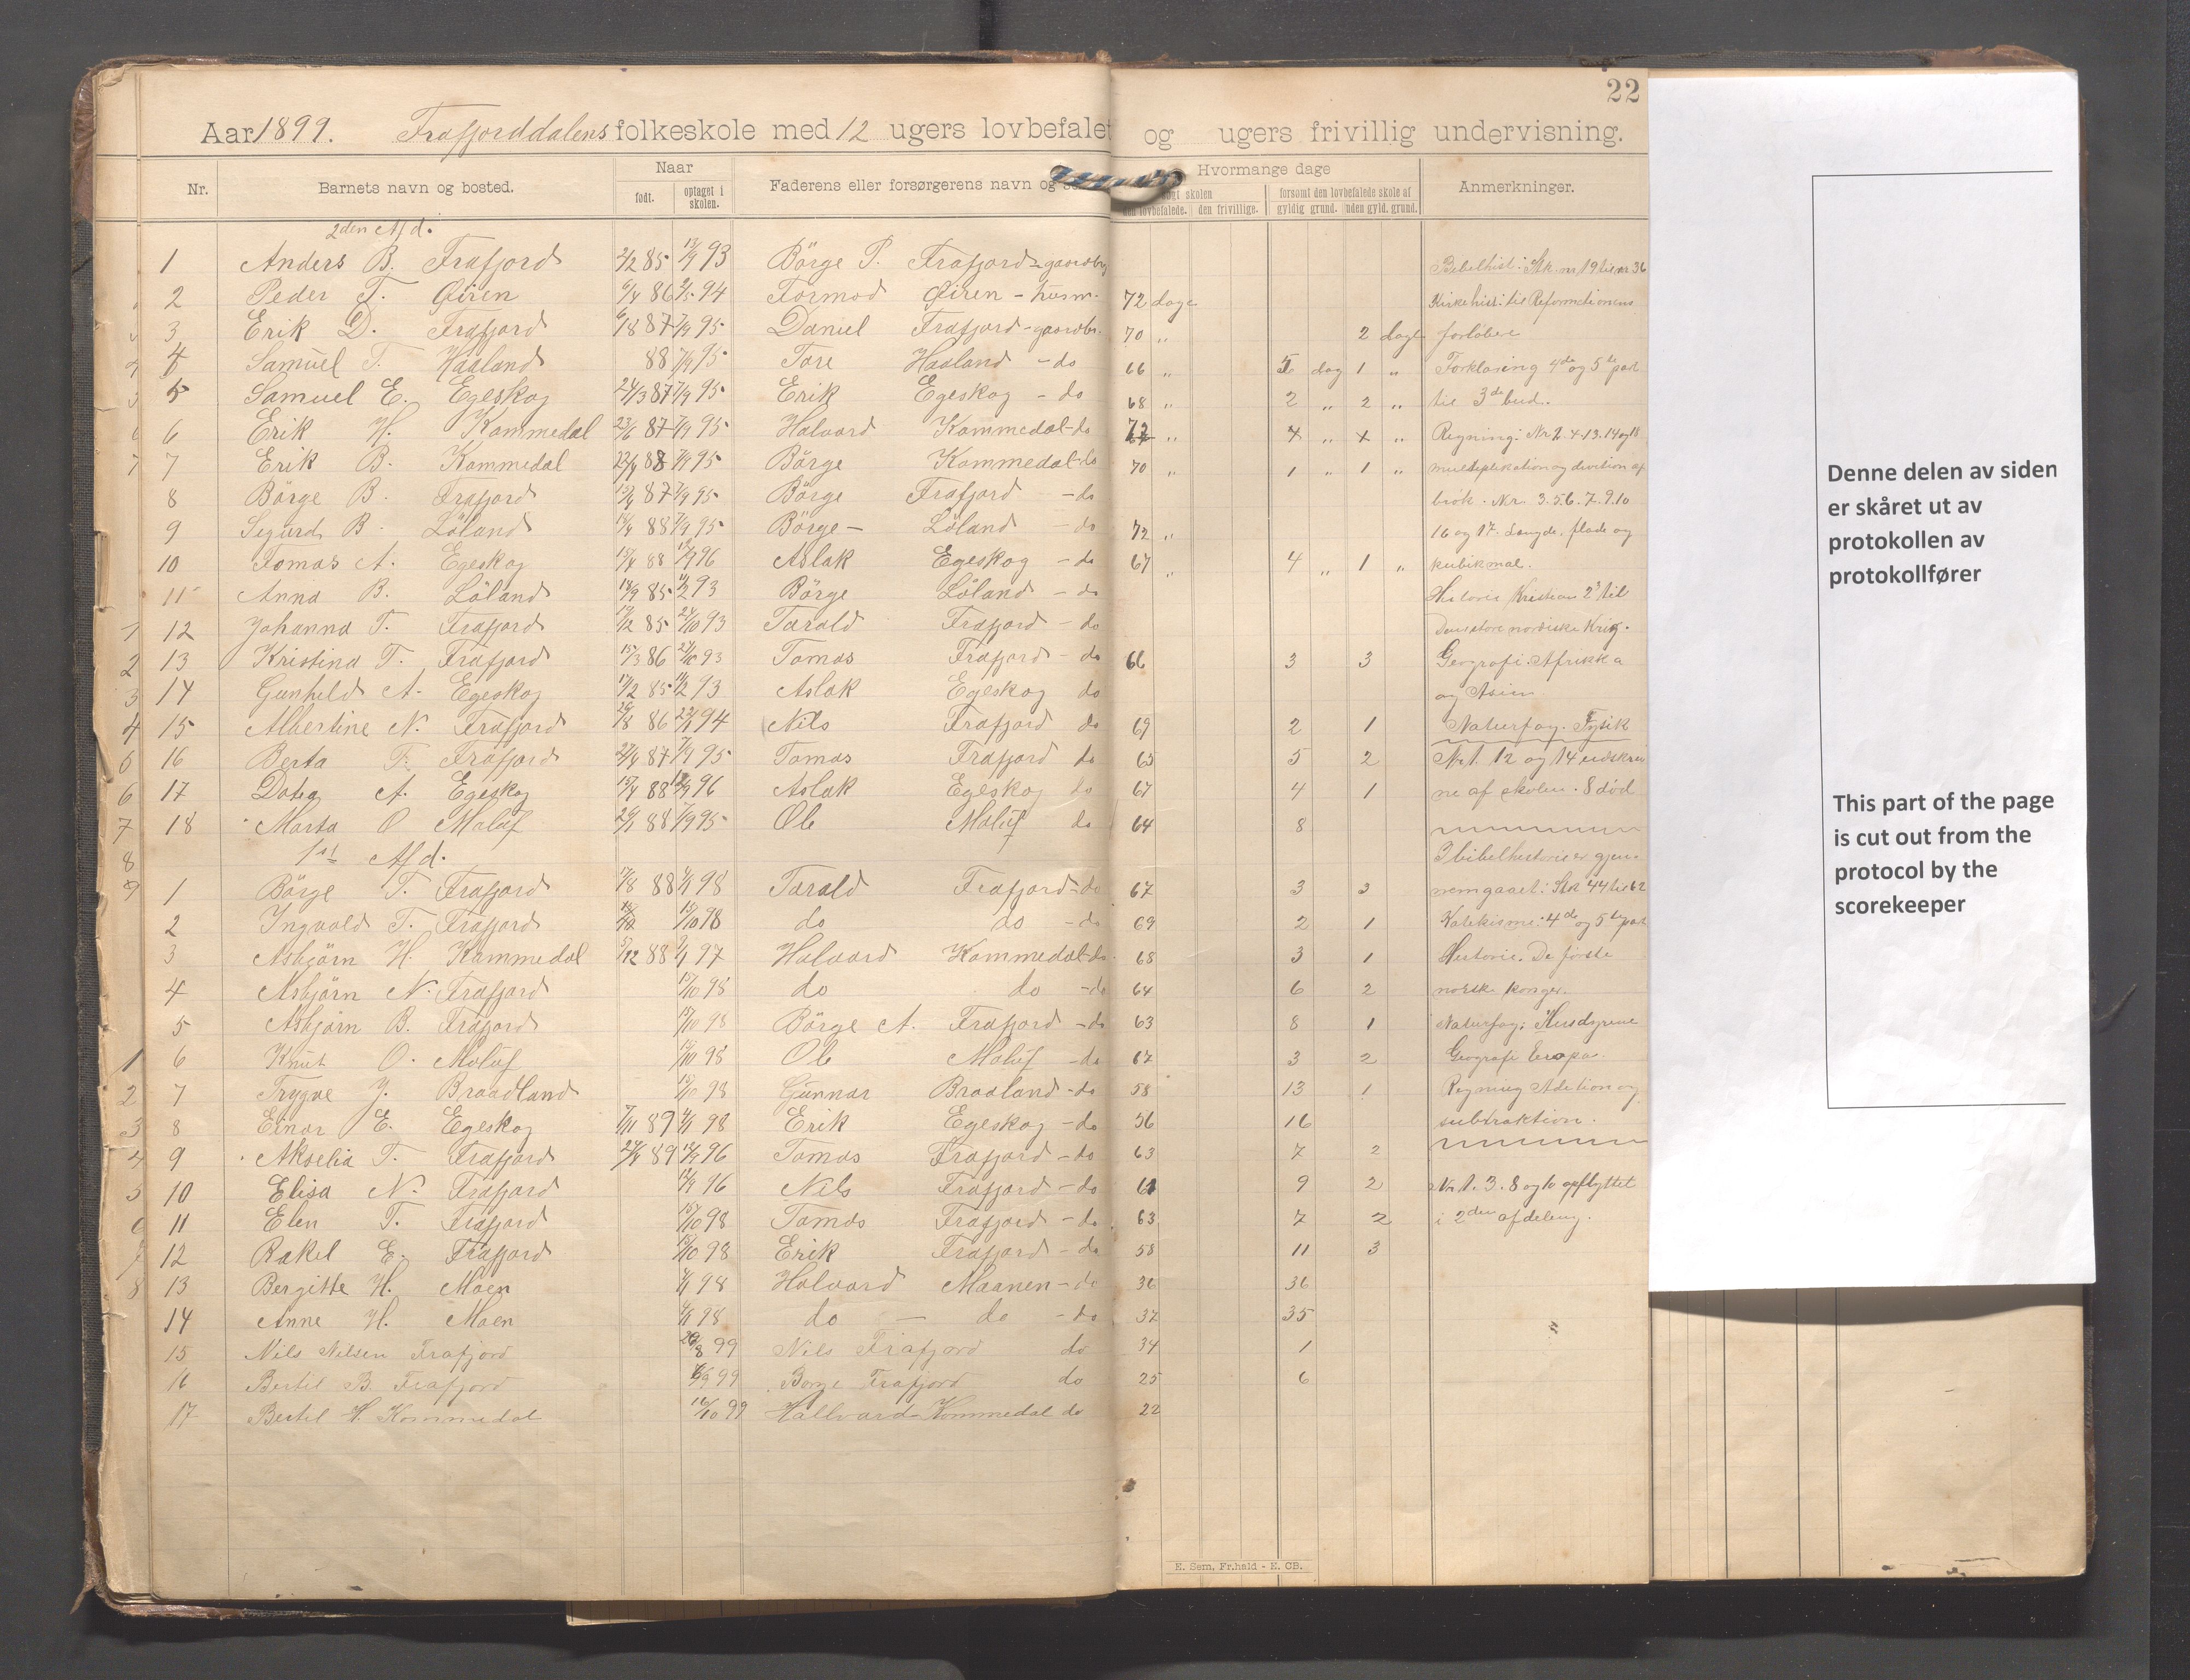 22
Aar 1899. Frafjorddalens folkeskole med 12 ugers lovbefalet og ugers frivillig undervisning.
Nr. Barnets navn og bosted. Naar født. optaget i skolen. Faderens eller forsørgerens navn og Hvormange dage søgt skolen den lovbefalede. den frivillige. forsømt den lovbefalede skole af gyldig grund. uden gyld. grund. Anmerkninger.
2den Afd.
1 Anders B. Frafjord 2/2 85 13/9 93 Börge P. Frafjord - gaardbr Bibelhist: Stk. nr 19 til nr 36
2 Peder T. Øiren 6/4 86 2/5 94 Tormod Øiren - husm. 72 dage Kirkehist: til Reformationens
3 Erik D. Frafjord 87 7/9 95 Daniel Frafjord - gaardbr. 70 " 2 dage forløbere
4 Samuel T. Haaland 88 7/9 95 Tore Haaland - do 66 " 5 dag 1 " Forklaring 4de og 5te part
5 Samuel E. Egeskog 24/3 87 7/9 95 Erik Egeskog - do 68 " 2 " 2 " til 3de bud.
6 Erik H. Kommedal 23/6 87 7/9 95 Halvard Kommedal - do 72 " " " Regning: Nr 2. 4. 13. 14 og 18
7 Erik B. Kommedal 22/9 88 7/9 95 Börge Kommedal - do 70 " 1 " 1 " multiplikation og division af
8 Börge B. Frafjord 87 7/9 95 Börge Frafjord - do brök. Nr. 3. 5. 6. 7. 9. 10
9 Sigurd B. Löland 88 7/9 95 Börge - Löland - do 72 " 16 og 17. Længde, flade og
10 Tomas A. Egeskog 15/4 88 96 Aslak Egeskog - do 67 " 4 " 1 " kubikmal.
11 Anna B. Löland 85 93 Börge Löland - do Historie Kristian 2 til
12 Johanna T. Frafjord 85 24/10 93 Tarald Frafjord - do Den store nordiske Krig.
13 Kristina T. Frafjord 15/3 86 93 Tomas Frafjord - do 66 3 3 Geografi. Afrikka
14 Gunhild A. Egeskog 85 93 Aslak Egeskog do og Asien
15 Albertine N. Frafjord 26/8 86 94 Nils Frafjord do 69 2 1 Naturfag. Fysik
16 Berta T. Frafjord 87 7/9 95 Tomas Frafjord do 65 5 2 Nr 1. 12 og 14 udskrev
17 A. Egeskog 15/4 88 96 Aslak Egeskog do 67 4 1 ne af skolen. 8 död
18 Marta O Maluf 88 7/9 95 Ole Maluf do 64 8
1ste Afd. I bibelhistorie er gjen-
1 Börge T. Frafjord 88 98 Tarald Frafjord - do 67 3 3 nemgaaet: Stk 44 til 62
2 Ingvald T. Frafjord 15/10 98 do do - do 69 2 1 Katekisme. 4de og 5te part
3 Asbjörn H. Kommedal 5/12 88 97 Halvard Kommedal - do 68 3 1 Historie. De første
4 Asbjörn N. Frafjord 15/10 98 do do - do 64 6 2 norske konger.
5 Asbjörn B. Frafjord 15/10 98 Börge A. Frafjord - do 63 8 1 Naturfag: Husdyrene
6 Knut O. Maluf 15/10 98 Ole Maluf - do 67 3 2 Geografi Europa.
7 Trygve J. Braadland 15/10 98 Gunnar Braaland - do 58 13 1 Regning Adetion og
8 Einar E. Egeskog 7/11 89 98 Erik Egeskog - do 56 16 subtraktion.
9 Akselia T. Frafjord 89 96 Tomas Frafjord - do 63 7 2
10 Elisa N. Frafjord 96 Nils Frafjord - do 61 9 2 Nr 1. 3. 8 og 10 opflyttet
11 Elen T. Frafjord 15/10 98 Tomas Frafjord - do 63 7 2 i 2den afdeling.
12 Rakel E. Frafjord 15/10 98 Erik Frafjord - do 58 11 3
13 Bergitte H. Moen 98 Halvard Maanen - do 36 36
14 Anne H. Moen 98 do - do - do 37 35
15 Nils Nilsen Frafjord 99 Nils Frafjord do 34 1
16 Bertil B. Frafjord 99 Borge Frafjord do 25 6
17 Bertel H. Kommedal 16/10 99 Hallvard Kommedal do 22
E. Sem, Fr.hald - E. CB.
Denne delen av siden
er skåret ut av
protokollen av
protokollfører
This part of the page
is cut out from the
protocol by the
scorekeeper